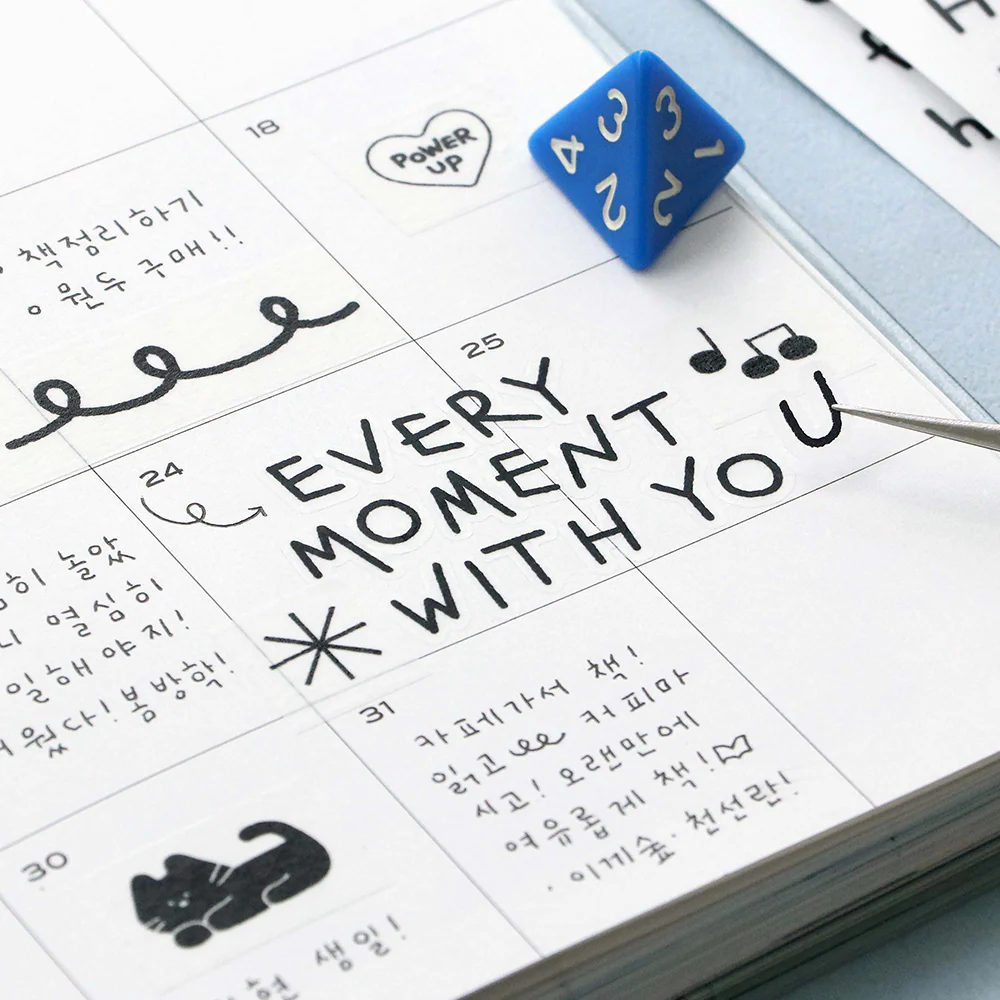 18
POWER
UP
책정리하기
원두 구매!!
25
EVERY
MOMENT
WITH YOU
24
놀았
열심히
일해야지!
봄방학!
31
카페가서 책!
읽고 커피마
시고! 오랜만에
여유롭게 책!
· 이끼숲 · 천선란!
30
생일!
4 3 2
3 1 2
f
h